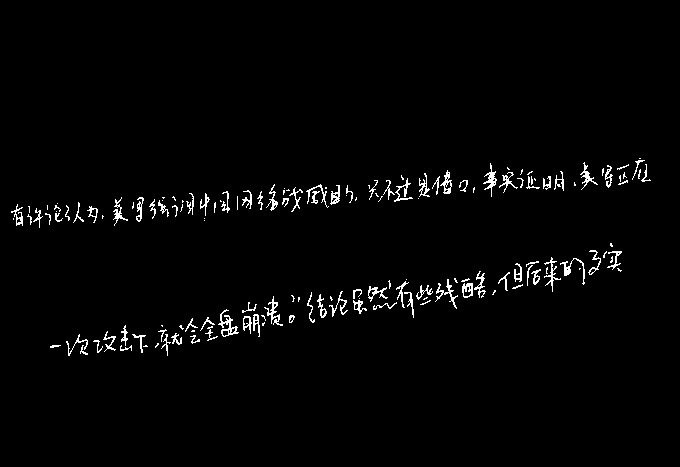 有评论认为,美军强调中国网络战威胁,只不过是借口,事实证明,美军正在
一次攻击下,就会全盘崩溃。”结论虽然有些残酷,但后来的事实